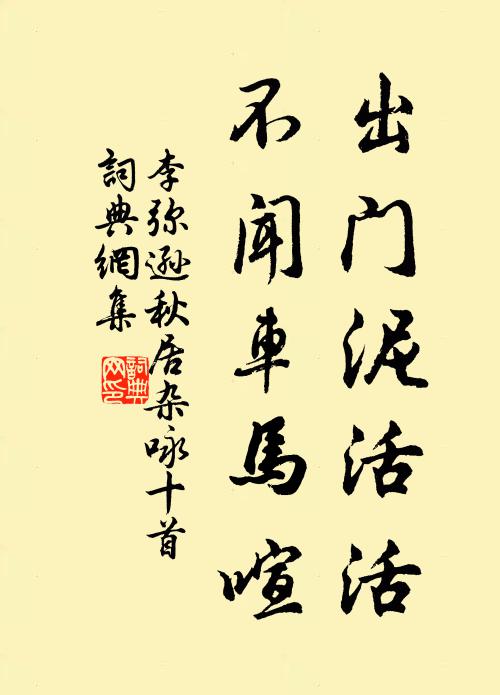 出门泥活活
不闻車馬喧
李弥逊秋居杂咏十首
詞典網集
詞典
网印